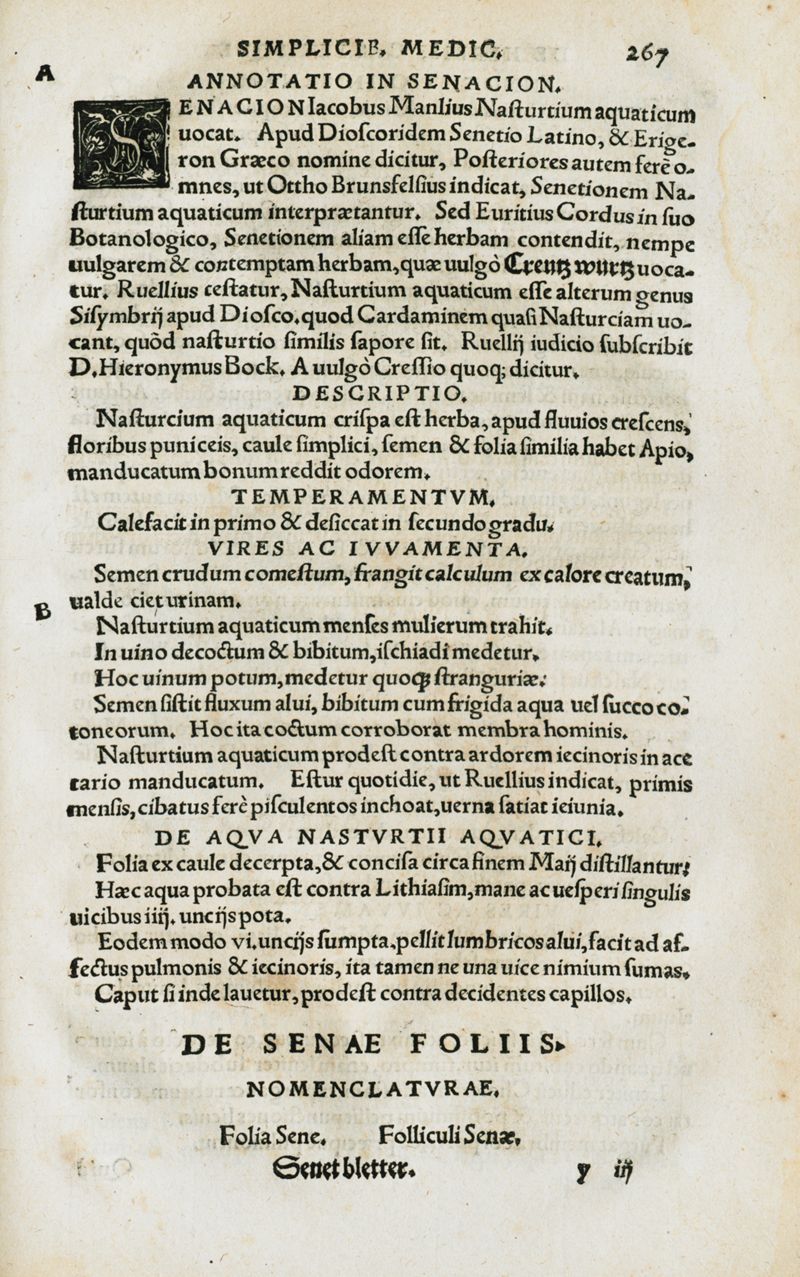 SIMPLICIB. MEDIC. 267
A
ANNOTATIO IN SENACION.
SENACION Iacobus Manlius Naſturtium aquaticum
uocat. Apud Dioſcoridem Senetio Latino, & Erige-
ron Græco nomine dicitur, Poſteriores autem ferè o-
mnes, ut Ottho Brunsfelſius indicat, Senetionem Na-
ſturtium aquaticum interpræтantur. Sed Euritius Cordus in ſuo
Botanologico, Senetionem aliam eſſe herbam contendit, nempe
uulgarem & contemptam herbam, quæ uulgò Creutz wurtz uoca-
tur. Ruellius teſtatur, Naſturtium aquaticum eſſe alterum genus
Siſymbrij apud Dioſco. quod Cardaminem quaſi Naſturciam uo-
cant, quòd naſturtio ſimilis ſapore ſit. Ruellij iudicio ſubſcribit
D. Hieronymus Bock. A uulgò Creſſio quoq; dicitur.
DESCRIPTIO.
Naſturcium aquaticum criſpa eſt herba, apud fluuios creſcens,
floribus puniceis, caule ſimplici, ſemen & folia ſimilia habet Apio,
manducatum bonum reddit odorem.
TEMPERAMENTVM.
Calefacit in primo & deſiccat in ſecundo gradu.
VIRES AC IVVAMENTA.
Semen crudum comeſtum, frangit calculum ex calore creatum,
B
ualde ciet urinam.
Naſturtium aquaticum menſes mulierum trahit.
In uino decoctum & bibitum, iſchiadi medetur.
Hoc uinum potum, medetur quoq; ſtranguriæ.
Semen ſiſtit fluxum alui, bibitum cum frigida aqua uel ſucco co-
toneorum. Hoc ita coctum corroborat membra hominis.
Naſturtium aquaticum prodeſt contra ardorem iecinoris in ace
tario manducatum. Eſtur quotidie, ut Ruellius indicat, primis
menſis, cibatus ferè piſculentos inchoat, uerna ſatiat ieiunia.
DE AQVA NASTVRTII AQVATICI.
Folia ex caule decerpta, & conciſa circa finem Maij diſtillantur:
Hæc aqua probata eſt contra Lithiaſim, mane ac ueſperi ſingulis
uicibus iiij. uncijs pota.
Eodem modo vi. uncijs ſumpta, pellit lumbricos alui, facit ad af-
fectus pulmonis & iecinoris, ita tamen ne una uice nimium ſumas.
Caput ſi inde lauetur, prodeſt contra decidentes capillos.
DE SENAE FOLIIS.
NOMENCLATVRAE.
Folia Sene. Folliculi Senæ,
Senet bletter. y iij